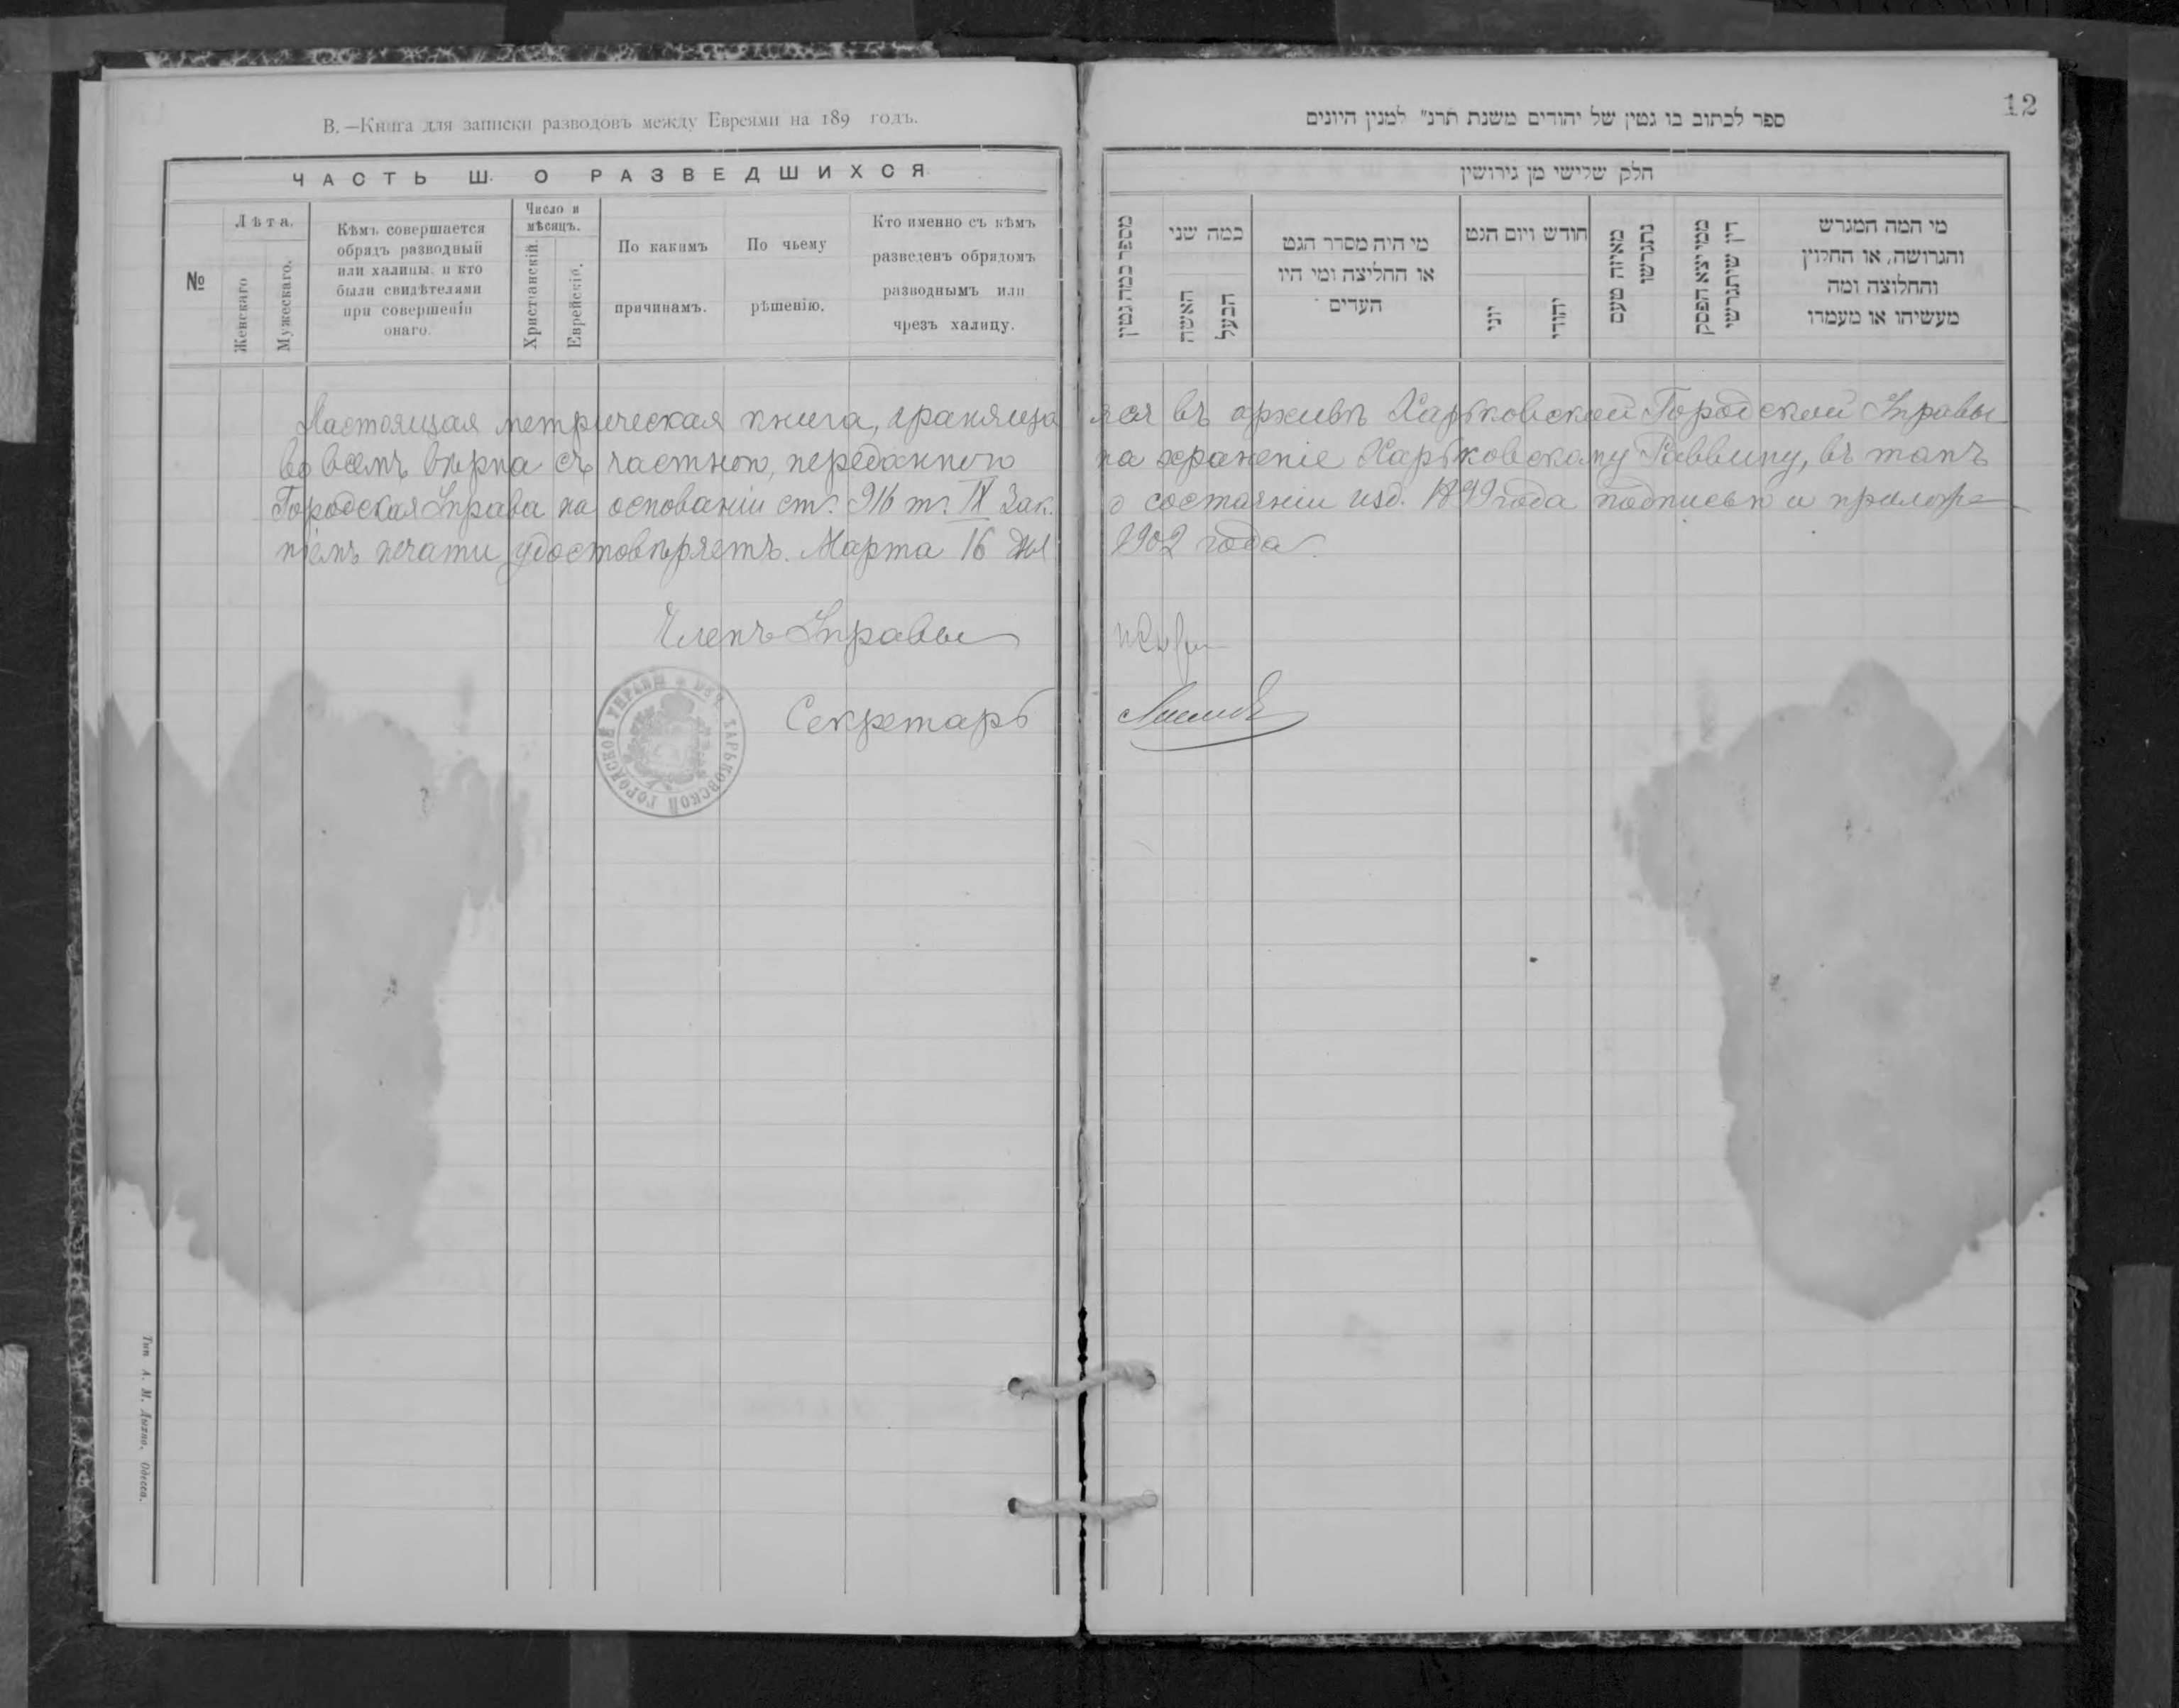 В.—Книга для записки разводовъ между Евреями на 189 годъ.
ЧАСТЬ Ш. О РАЗВЕДШИХСЯ
№
Лѣта.
Женскаго
Мужескаго.
Кѣмъ совершается
обрядъ разводный
или халицы, и кто
были свидѣтелями
при совершеніи
онаго.
Число и
мѣсяцъ.
Христіанскій.
Еврейскій.
По какимъ
причинамъ.
По чьему
рѣшенію.
Кто именно съ кѣмъ
разведенъ обрядомъ
разводнымъ или
чрезъ халицу.
12
ספר לכתוב בו גטין של יהודים משנת תרנ" למנין היונים
חלק שלישי מן גירושין
מספר כמה גטין
כמה שני
האשה
הבעל
מי היה מסדר הגט
או החליצה ומי היו
העדים
חודש ויום הגט
יוני
יהודי
מאיזה טעם
נתגרשו
ממי יצא הפסק
דין שיתגרשו
מי המה המגרש
והגרושה, או החלוץ
והחלוצה ומה
מעשיהו או מעמדו
Настоящая метрическая книга, хранящаяся въ архивѣ Харьковской Городской Управы
во всемъ вѣрна съ частною, переданною на храненіе Харьковскому Раввину, въ томъ
Городская Управа на основаніи ст. 916 т. IX Зак. о состояніи изд. 1899 года подписью и приложе-
ніемъ печати удостовѣряетъ. Марта 16 дня 1902 года.
Членъ Управы
Секретарь
ПЕЧ. ХАРЬКОВСКОЙ ГОРОДСКОЙ УПРАВЫ
Тип А. М. Дыхно, Одесса.